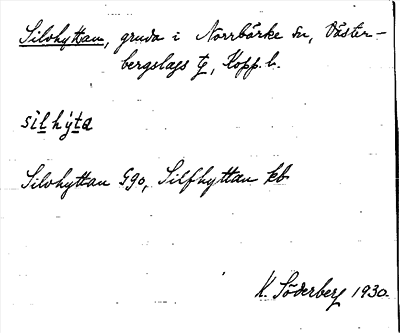 Silvhyttan, gruva i Norrbärke sn, Väster-
bergslags tg, Kopp. l.
silhýta
Silvhyttan G90, Silfhyttan kb
K. Söderberg 1930